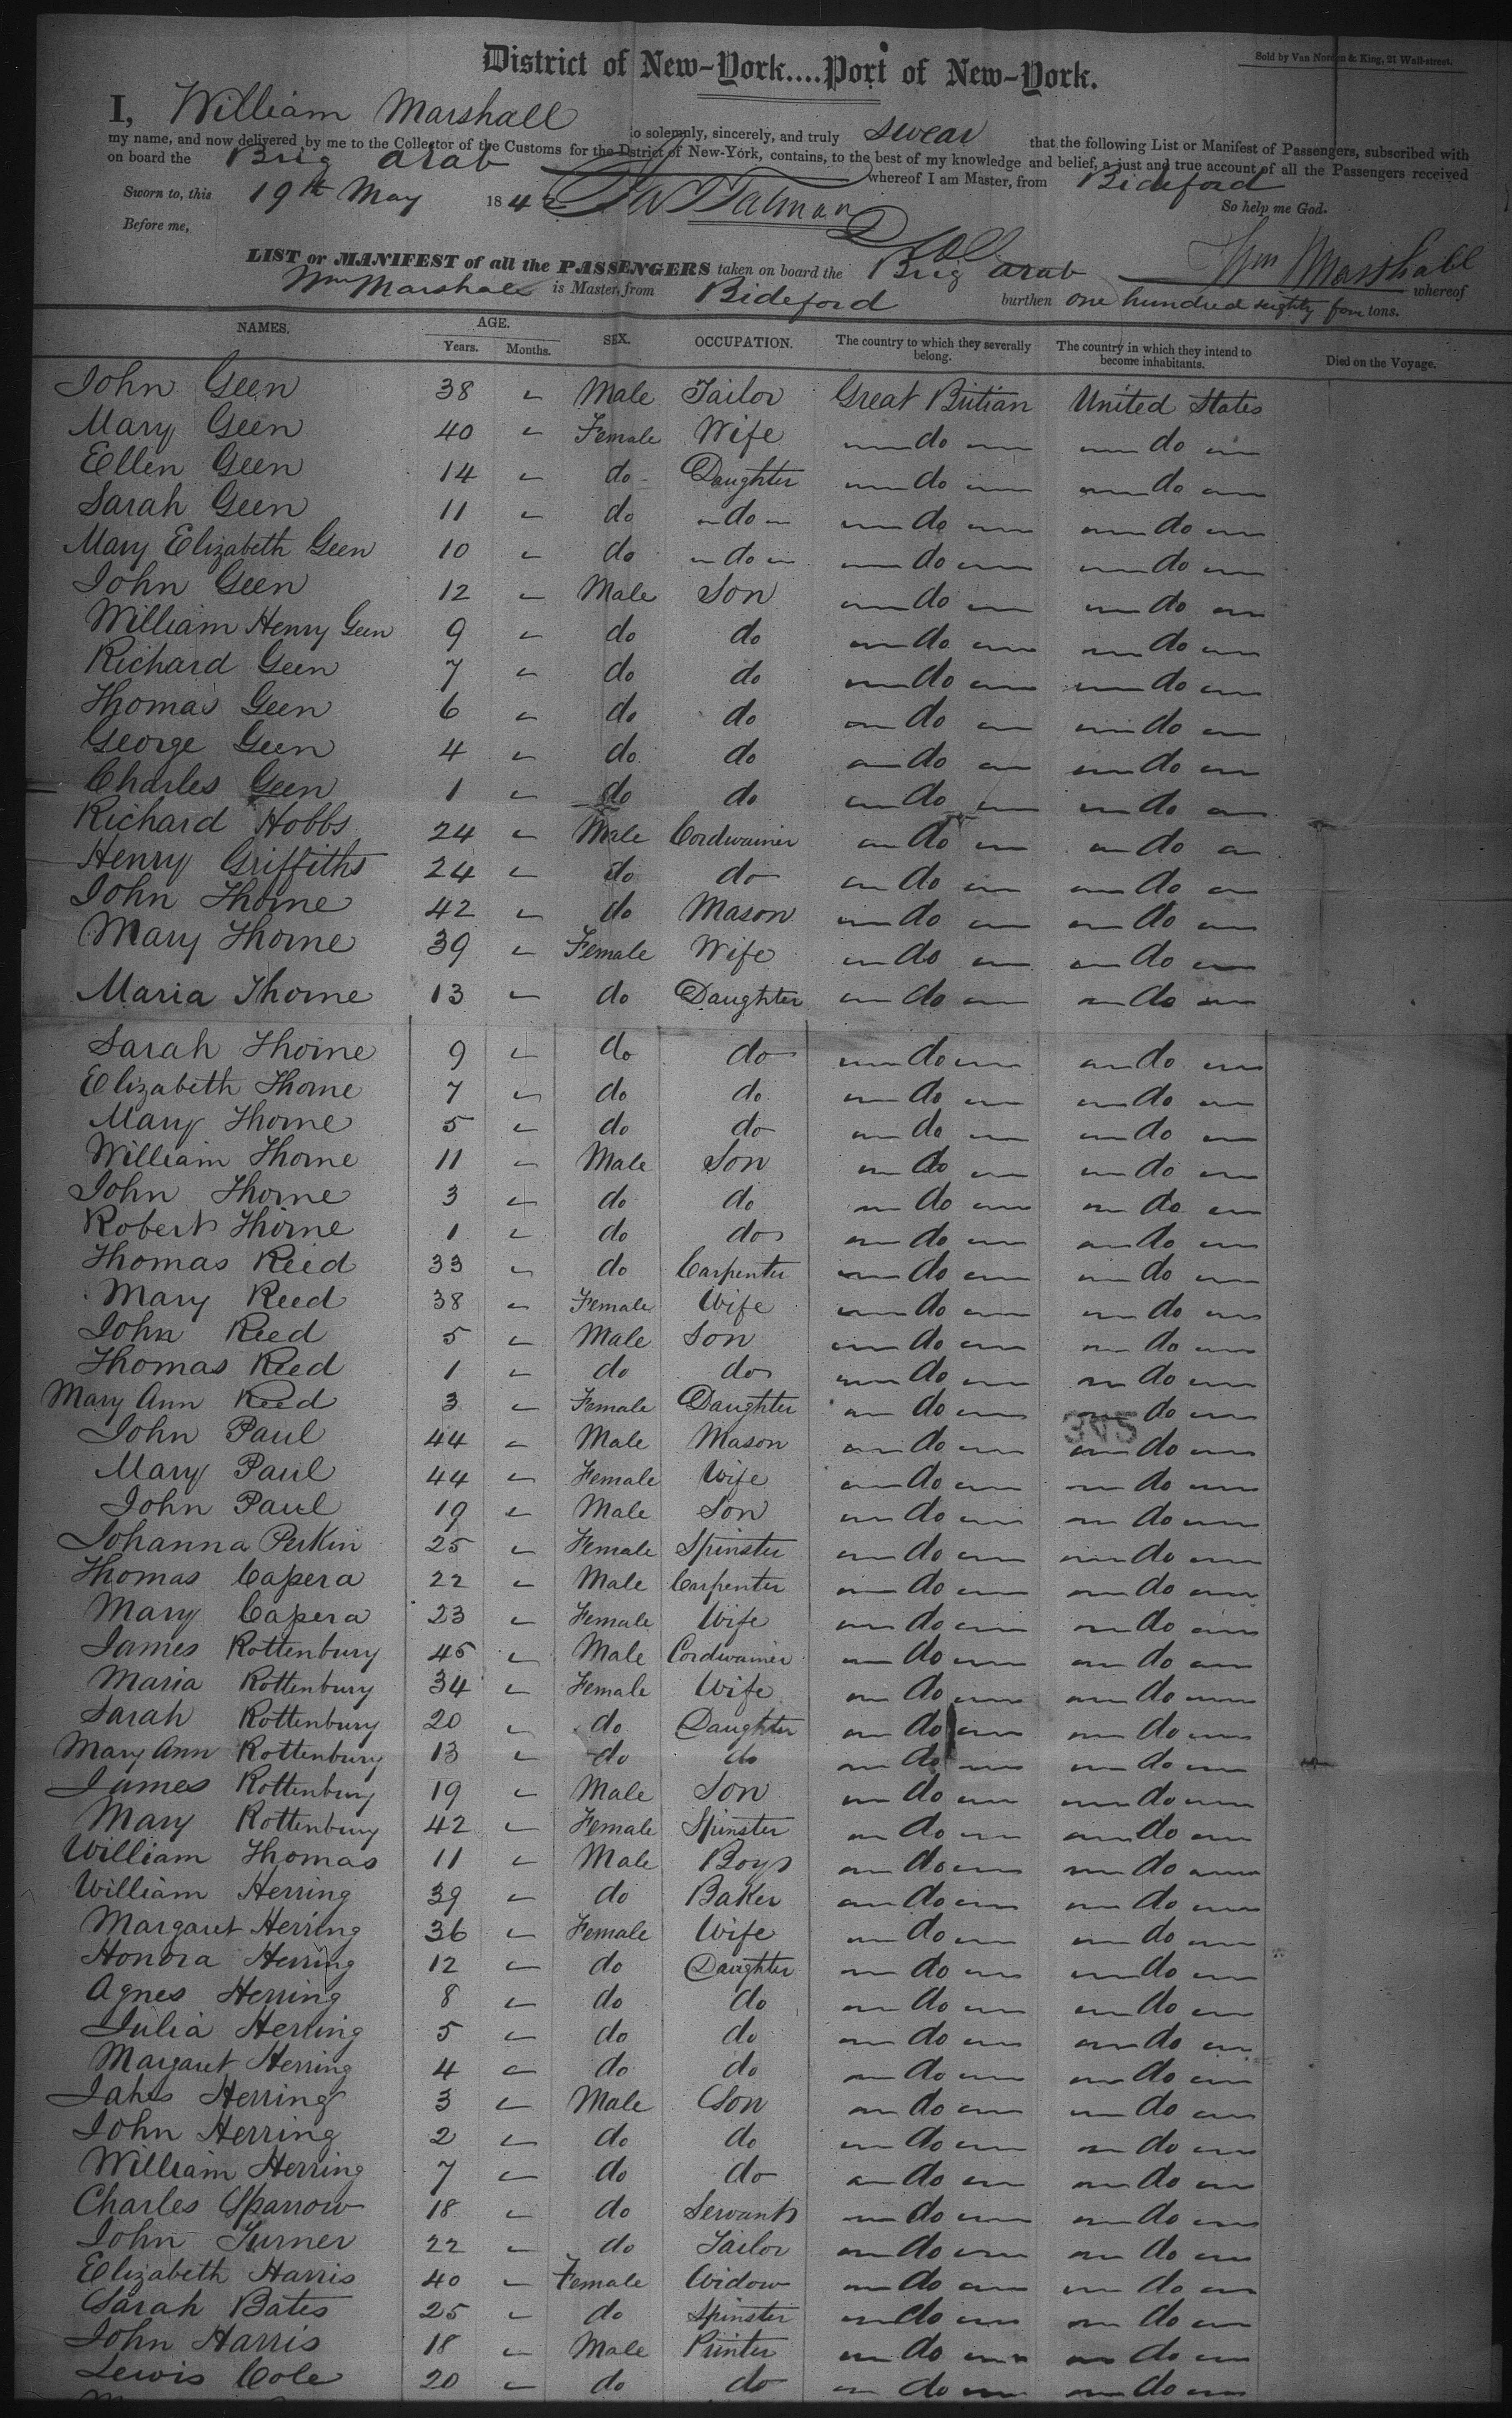 District of New-York....Port of New-York.
Sold by Van Norden & King, 21 Wall-street.
I, William Marshall do solemnly, sincerely, and truly swear that the following List or Manifest of Passengers, subscribed with
my name, and now delivered by me to the Collector of the Customs for the District of New-York, contains, to the best of my knowledge and belief, a just and true account of all the Passengers received
on board the Brig Arab whereof I am Master, from Bideford
Sworn to, this 19th May 184 So help me God.
Before me,
Wm Marshall
LIST or MANIFEST of all the PASSENGERS taken on board the Brig Arab whereof
Wm Marshall is Master, from Bideford burthen one hundred eighty four tons.
NAMES. AGE. Years. Months. SEX. OCCUPATION. The country to which they severally belong. The country in which they intend to become inhabitants. Died on the Voyage.
John Geen 38 Male Tailor Great Britian United States
Mary Geen 40 Female Wife do do
Ellen Geen 14 do Daughter do do
Sarah Geen 11 do do do do
Mary Elizabeth Geen 10 do do do do
John Geen 12 Male Son do do
William Henry Geen 9 do do do do
Richard Geen 7 do do do do
Thomas Geen 6 do do do do
George Geen 4 do do do do
Charles Geen 1 do do do do
Richard Hobbs 24 Male Cordwainer do do
Henry Griffiths 24 do do do do
John Thorne 42 do Mason do do
Mary Thorne 39 Female Wife do do
Maria Thorne 13 do Daughter do do
Sarah Thorne 9 do do do do
Elizabeth Thorne 7 do do do do
Mary Thorne 5 do do do do
William Thorne 11 Male Son do do
John Thorne 3 do do do do
Robert Thorne 1 do do do do
Thomas Reed 33 do Carpenter do do
Mary Reed 38 Female Wife do do
John Reed 5 Male Son do do
Thomas Reed 1 do do do do
Mary Ann Reed 3 Female Daughter do do
John Paul 44 Male Mason do do
Mary Paul 44 Female Wife do do
John Paul 19 Male Son do do
Johanna Perkin 25 Female Spinster do do
Thomas Capera 22 Male Carpenter do do
Mary Capera 23 Female Wife do do
James Rottenbury 45 Male Cordwainer do do
Maria Rottenbury 34 Female Wife do do
Sarah Rottenbury 20 do Daughter do do
Mary Ann Rottenbury 13 do do do do
James Rottenbury 19 Male Son do do
Mary Rottenbury 42 Female Spinster do do
William Thomas 11 Male Boy do do
William Herring 39 do Baker do do
Margaret Herring 36 Female Wife do do
Honora Herring 12 do Daughter do do
Agnes Herring 8 do do do do
Julia Herring 5 do do do do
Margaret Herring 4 do do do do
Herring 3 Male Son do do
John Herring 2 do do do do
William Herring 7 do do do do
Charles Sparrow 18 do Servant do do
John Turner 22 do Tailor do do
Elizabeth Harris 40 Female Widow do do
Sarah Bates 25 do Spinster do do
John Harris 18 Male Printer do do
Lewis Cole 20 do do do do